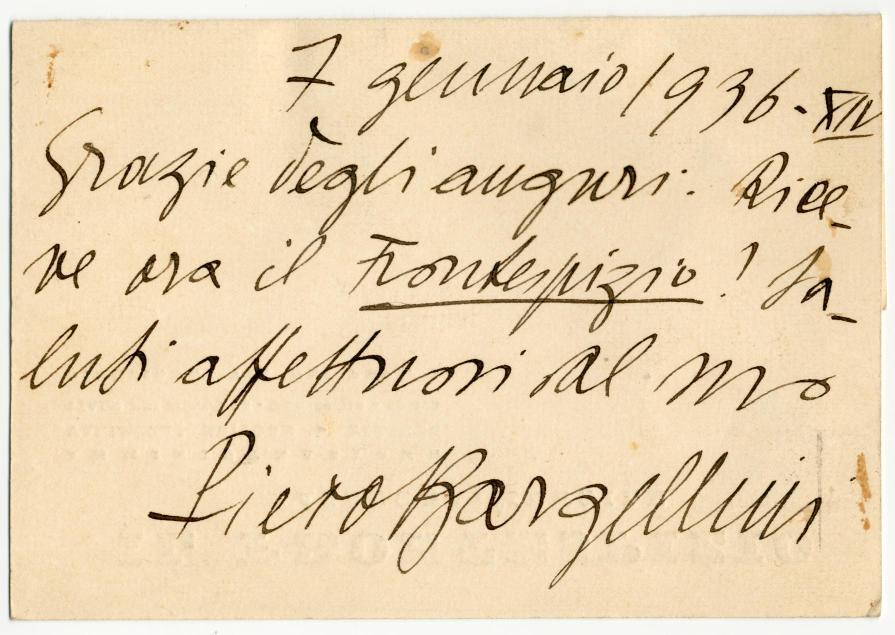 7 gennaio 1936. XIV
Grazie degli auguri. Rice-
ve ora il Frontespizio! Sa-
luti affettuosi dal suo
Piero Bargellini